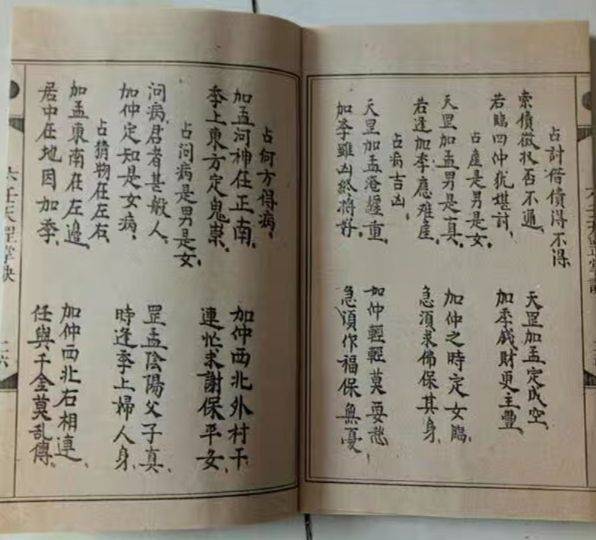 占討借債得不得
索債徵收否不通、 天罡加孟定成空、
若臨四仲猶堪討、 加季錢財更主豐、
占產是男是女、
天罡加孟男是真、 加仲之時定女臨、
若逢加季應难產、 急須求佛保其身、
占病吉凶
天罡加孟淹纏重、 如仲輕輕莫要愁
加季雖凶終將好、 急須作福保無憂
占何方得病、
加孟河神在正南、 加仲西北外村干
季上東方定鬼祟、 連忙求謝保平安
占问病是男是女、
问病君者甚般人、 罡孟陰陽父子真、
加仲定知是女病、 時逢季上婦人身、
占猜物在左右、
加孟東南在左邊、 加仲西北右相連、
居中在地因加季、 任與千金莫乱傳、
六壬天罡掌訣 二六